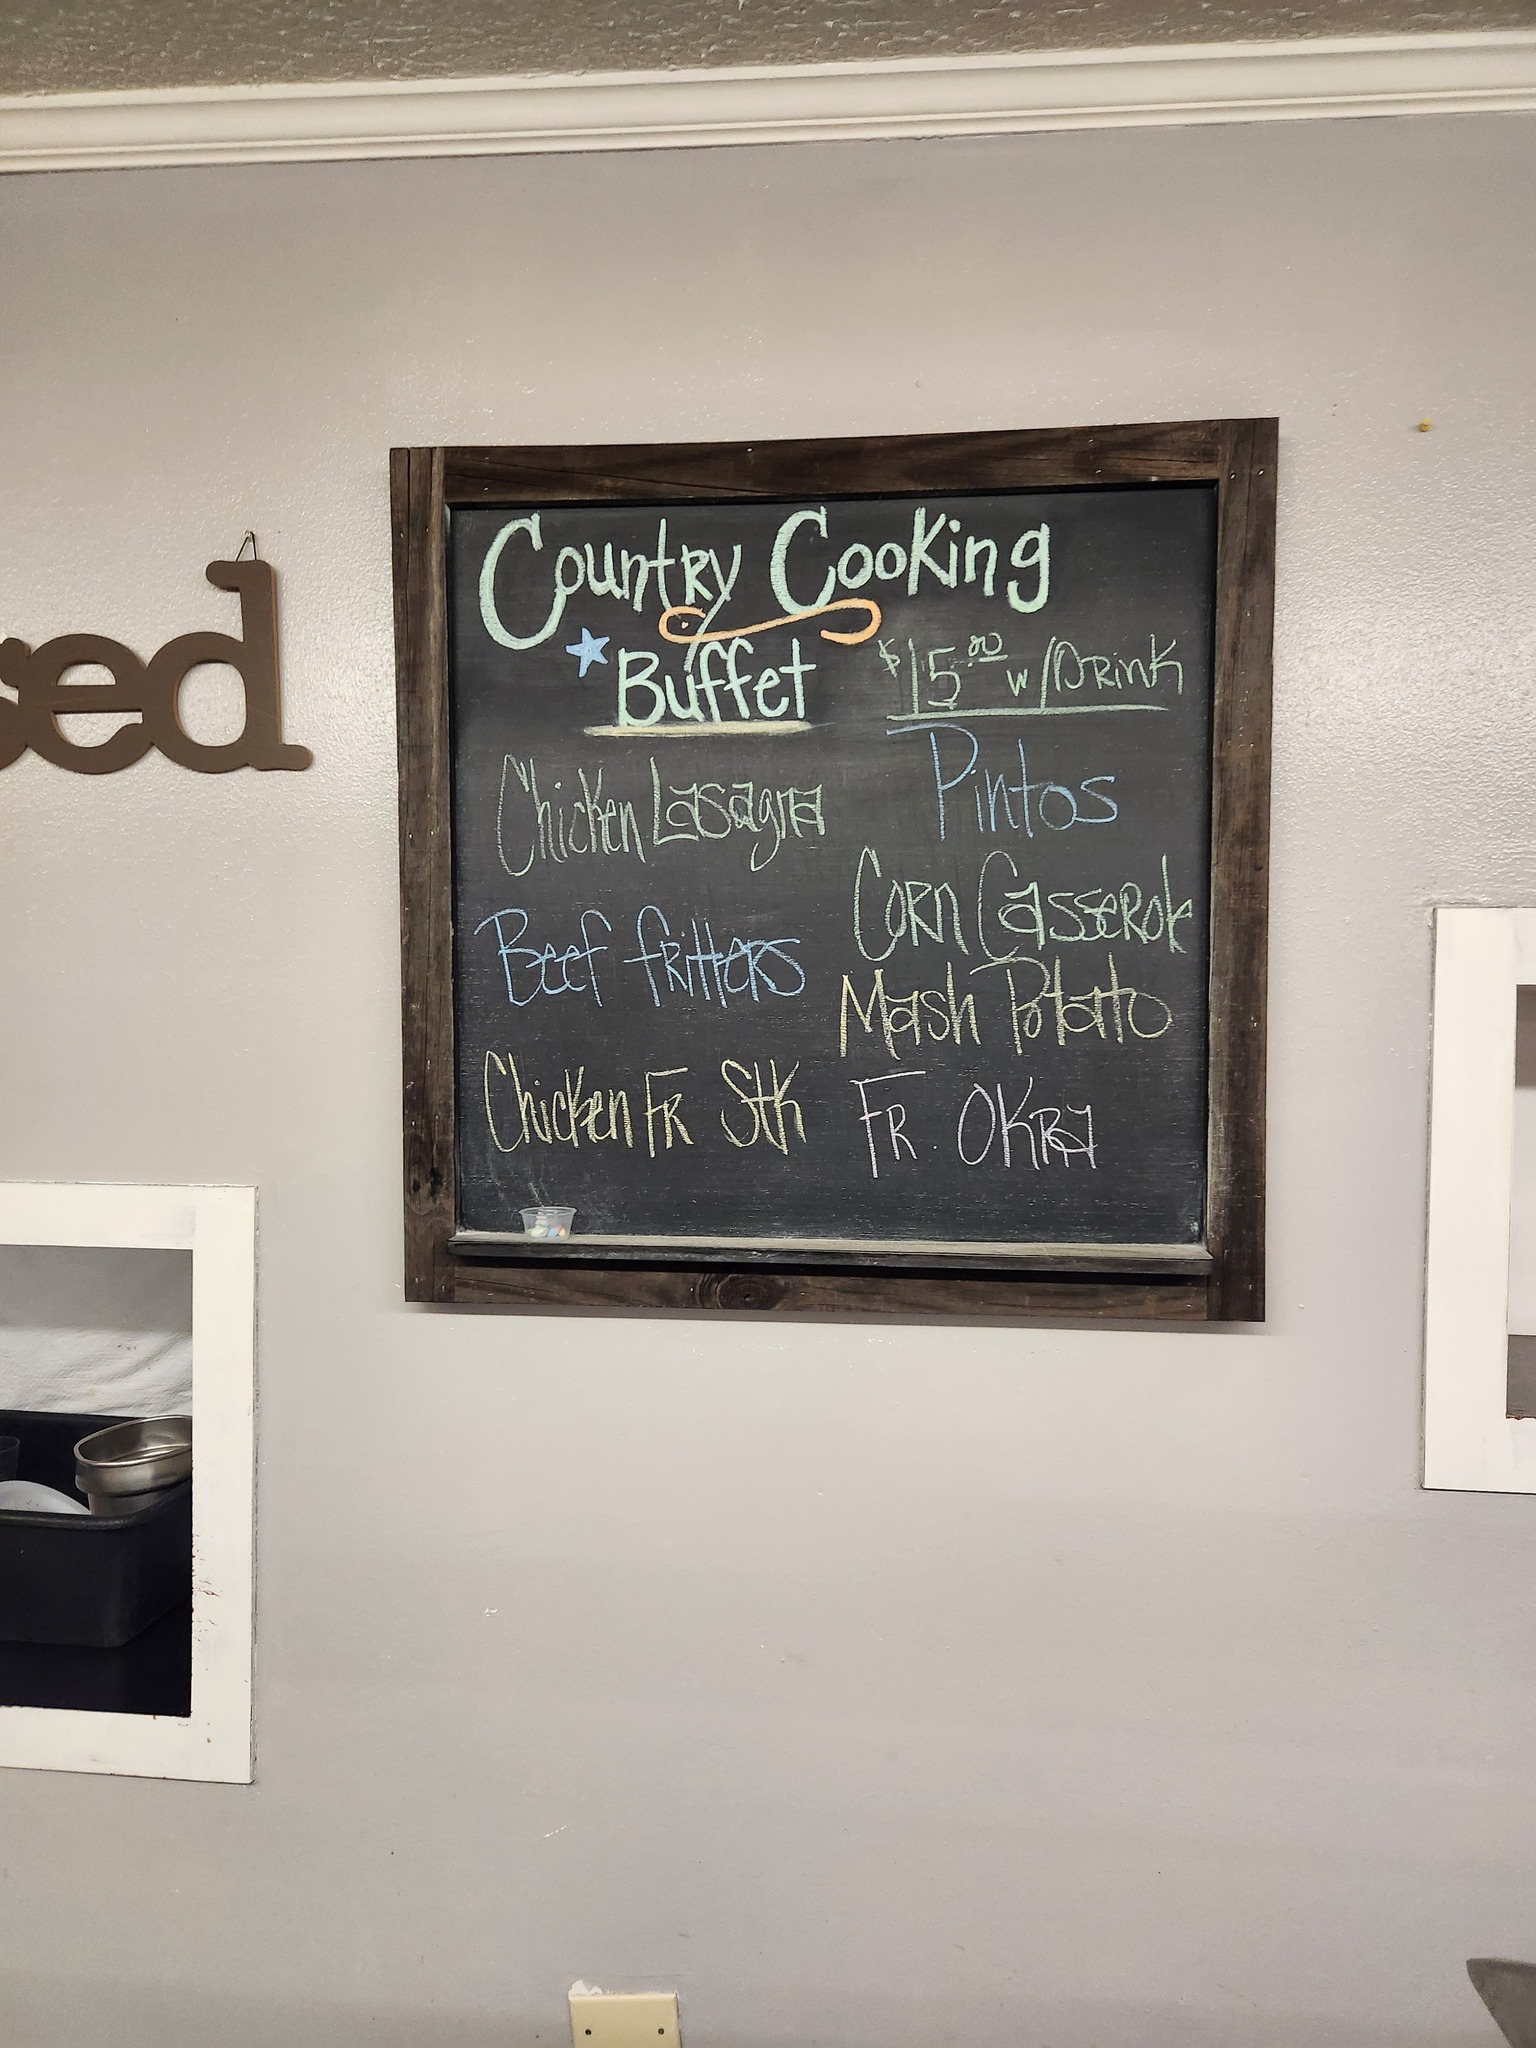 Country Cooking
Buffet
$15.00 w/Drink
Chicken Lasagna
Beef fritters
Chicken FR Stk
Pintos
Corn Casserole
Mash Potato
FR. OKRA
ed